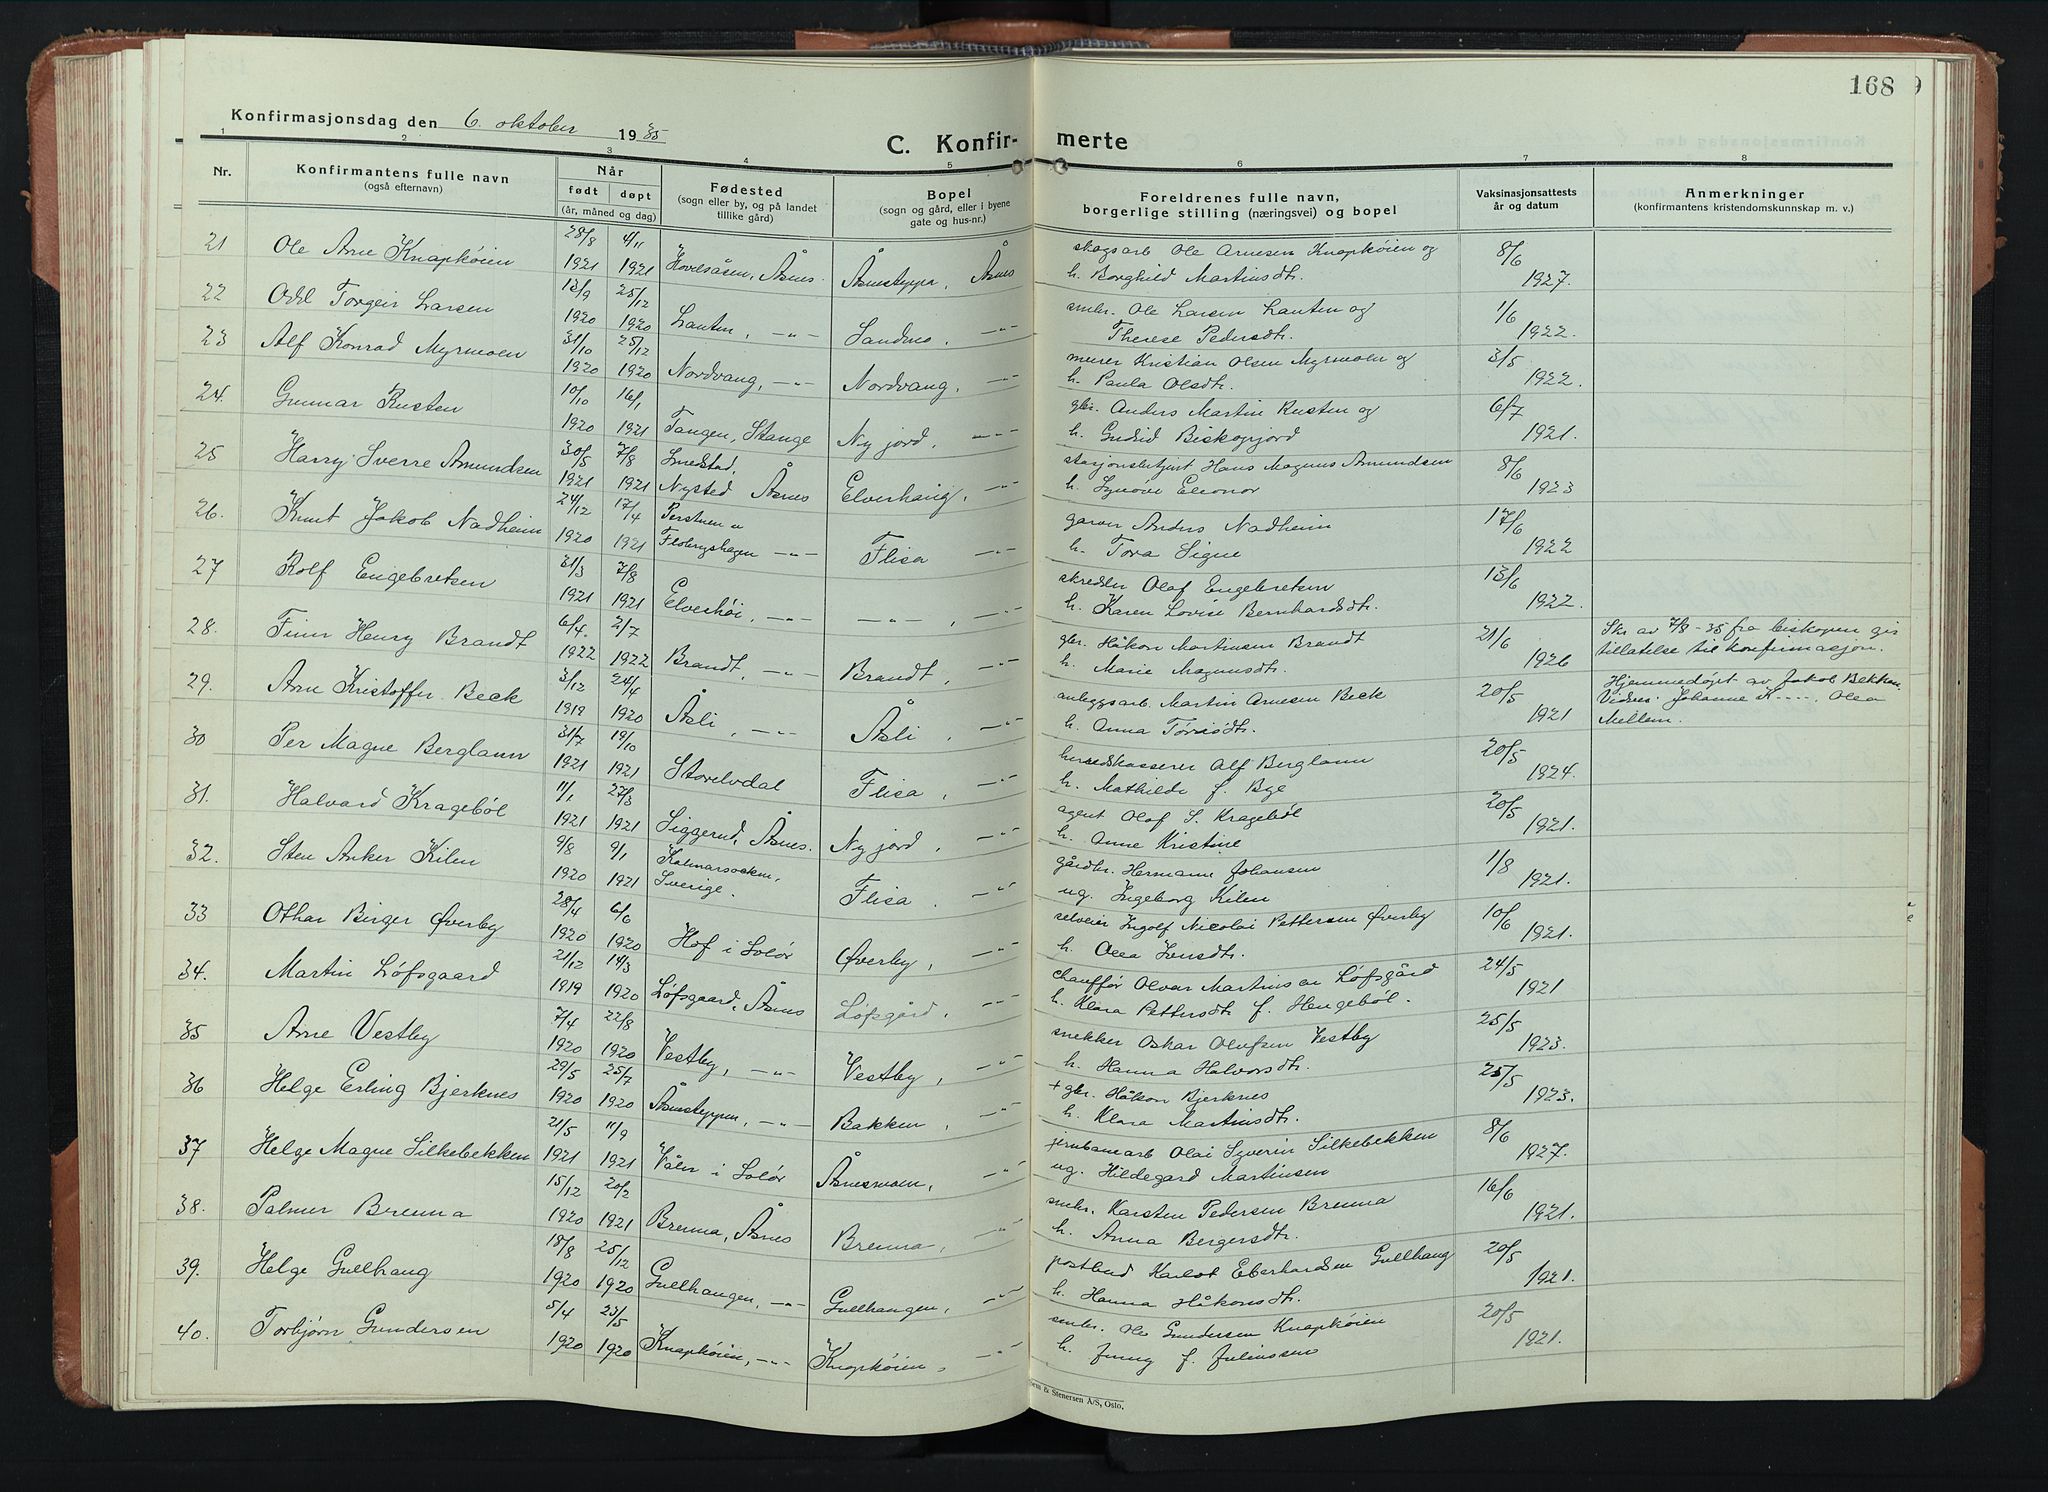 168
Konfirmasjonsdag den 6. oktober 1935
C. Konfirmerte
1 2 3 4 5 6 7 8
Nr.
Konfirmantens fulle navn
(også efternavn)
Når
født døpt
(år, måned og dag)
Fødested
(sogn eller by, og på landet
tillike gård)
Bopel
(sogn og gård, eller i byene
gate og hus-nr.)
Foreldrenes fulle navn,
borgerlige stilling (næringsvei) og bopel
Vaksinasjonsattests
år og datum
Anmerkninger
(konfirmantens kristendomskunnskap m. v.)
21 Ole Arne Knapkøien 28/8 1921 4/11 1921 Hovelsåsen, Åsnes. Åsnesteppa, Åsnes skogsarb Ole Arnesen Knapkøien og 8/6
h. Borghild Martinsdtr. 1927.
22 Odd Torgeir Larsen 13/9 1920 25/12 1920 Lauten, -"- Sandmo, -"- smbr. Ole Larsen Lauten og 1/6
Therese Pedersdtr. 1922.
23 Alf Konrad Myrmoen 31/10 1920 25/12 1920 Nordvang, -"- Nordvang, -"- murer Kristian Olsen Myrmoen og 3/5
h. Paula Olsdtr. 1922.
24. Gunnar Rusten 10/10 1920 16/1 1921 Tangen, Stange Ny jord, -"- gbr. Anders Martin Rusten og 6/7
h. Gudrid Biskopjord 1921.
25 Harry Sverre Amundsen 30/5 1921 7/8 1921 Smedstad, Nysted Åsnes Elverhaug, -"- stasjonsbetjent Hans Magnus Amundsen 8/6
h. Synøve Eleonor 1923
26. Knut Jakob Nadheim 24/12 1920 17/4 1921 Perstuen u Flobergshagen -"- Flisa -"- garver Anders Nadheim 17/6
h. Tora Signe 1922
27 Rolf Engebretsen 31/3 1921 7/8 1921 Elverhøi, -"- -"-, -"- skredder Olaf Engebretsen 13/6
h. Karen Lovise Bernhardsdtr. 1922.
28. Finn Henry Brandt 6/4. 1922 2/7 1922 Brandt, -"- Brandt, -"- gbr. Håkon Martinsen Brandt 21/6 Skr av 7/8-35 fra biskopen gir
h. Marie Magnusdtr. 1926 tillatelse til konfirmasjon.
29. Arne Kristoffer Beck 3/12 1919 24/4 1920 Åsli, -"- Åsli, -"- anleggsarb. Martin Arnesen Beck 20/5 Hjemmedøpt av Jakob Bekken
h. Anna 1921 Vidner: Johanne K----, Olea
Mellem.
30 Per Magne Berglann 31/7 1921 19/10 1921 Storelvdal Flisa, -"- herredskasserer Alf Berglann 20/5
h. Mathilde f. Bye 1924.
31. Halvard Kragebøl 11/1 1921 27/3 1921 Siggerud, Åsnes. Ny jord, -"- agent Olof S. Kragebøl 20/5
h. Anne Kristine 1921.
32. Sten Anker Kilen 9/8 1920 9/1 1921 Kalmarsocken, Sverige. Flisa. -"- gårdbr. Hermann Johansen 1/8
ug. Ingeborg Kilen 1921.
33 Othar Birger Øverby 28/4 1920 6/6 1920 Hof i Solør Øverby, -"- selveier Ingolf Nicolai Pettersen Øverby 10/6
h. Olea 1921.
34. Martin Løfsgaard 21/12 1919 14/3 1920 Løfsgaard, Åsnes Løfsgård, -"- chauffør Olvar Martinsen Løfsgård 24/5
h. Klara Pettersdtr f. Hengebøl. 1921
35 Arne Vestby 7/4 1920 22/8 1920 Vestby, -"- Vestby, -"- snekker Oskar Olufsen Vestby 25/5
h. Hanna Halvorsdtr. 1923.
36 Helge Erling Bjerknes 29/5 1920 25/7 1920 Åsnesteppen, -"- Bakken, -"- + gbr. Håkon Bjerknes 25/5
h. Klara Martinsdtr. 1923.
37 Helge Magne Silkebekken 21/5 1921 11/9 1921 Våler i Solør Åsnesmoen, -"- jernbanearb Olai Syverin Silkebekken 8/6
ug. Hildegard Martinsen 1927.
38. Palmer Brenna 15/12 1920 20/2 1921 Brenna, Åsnes Brenna, -"- smbr. Karsten Pedersen Brenna 16/6
h. Anna Bergersdtr. 1921.
39. Helge Gullhaug 18/8 1920 25/12 1920 Gullhaugen, -"- Gullhaugen, -"- postbud Karlot Eberhardsen Gullhaug 20/5
h. Hanna Håkonsdtr. 1921.
40. Torbjørn Gundersen 5/4 1920 23/5 1920 Knapkøien, -"- Knapkøien, -"- smbr. Ole Gundersen Knapkøien 20/5
h. Jenny f. Juliussen 1921.
& Stenersen A/S, Oslo.